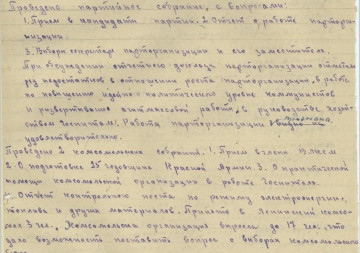 Проведено партийное собрание, с вопросами:
1. Прием в кандидаты партии. 2. Отчет о работе парторга-
низации.
3. Выборы секретаря парторганизации и его заместителя.
При обсуждении отчетного доклада парторганизации отмечен
ряд недостатков в отношении роста парторганизации, в работе
по повышению идейно-политического уровня коммунистов
и развертывания агитмассовой работы, в руководстве хозяй-
ством Госпиталя. Работа парторганизации признана
удовлетворительно.
Проведено 2 комсомольских собрания. 1. Прием в члены ВЛКСМ
2. О подготовке 25 годовщины Красной Армии. 3. О практической
помощи комсомольской организации в работе Госпиталя.
4. Отчет контрольного поста по режиму электроэнергии,
топлива и других материалов. Принято в Ленинский комсо-
мол 3 чел. Комсомольская организация выросла до 17 чел, что
дало возможность поставить вопрос о выборах комсомольского